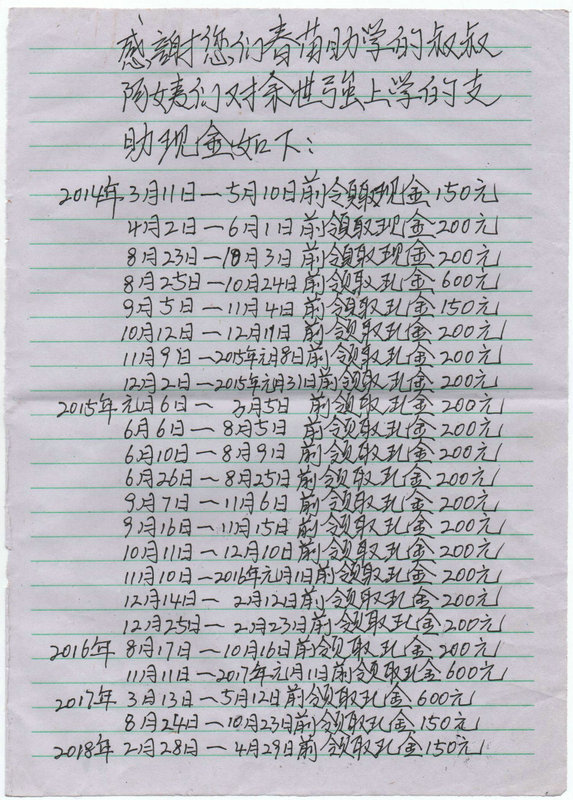 感謝您们春苗助学的叔叔
阿姨们对余世强上学的支
助现金如下：
2014年 3月11日—5月10日前领取现金150元
4月2日—6月1日前領取现金200元
8月23日—10月3日前领取现金200元
8月25日—10月24日前领取礼金600元
9月5日—11月4日前领取礼金150元
10月12日—12月11日前领取礼金200元
11月9日—2015年元月8日前领取礼金200元
12月2日—2015年元月31日前领取礼金200元
2015年元月6日— 3月5日 前领取礼金200元
6月6日—8月5日 前领取礼金200元
6月10日—8月9日 前领取礼金200元
6月26日—8月25日前领取礼金200元
9月7日—11月6日前领取礼金200元
9月16日—11月15日前领取礼金200元
10月11日—12月10日前领取礼金200元
11月10日—2016年元月1日前领取礼金200元
12月14日— 2月12日前领取礼金200元
12月25日—2月23日前领取礼金200元
2016年 8月17日—10月16日前领取礼金200元
11月11日—2017年元月1日前领取礼金600元
2017年 3月13日—5月12日前领取礼金600元
8月24日—10月23日前领取礼金150元
2018年 2月28日—4月29日前领取礼金150元